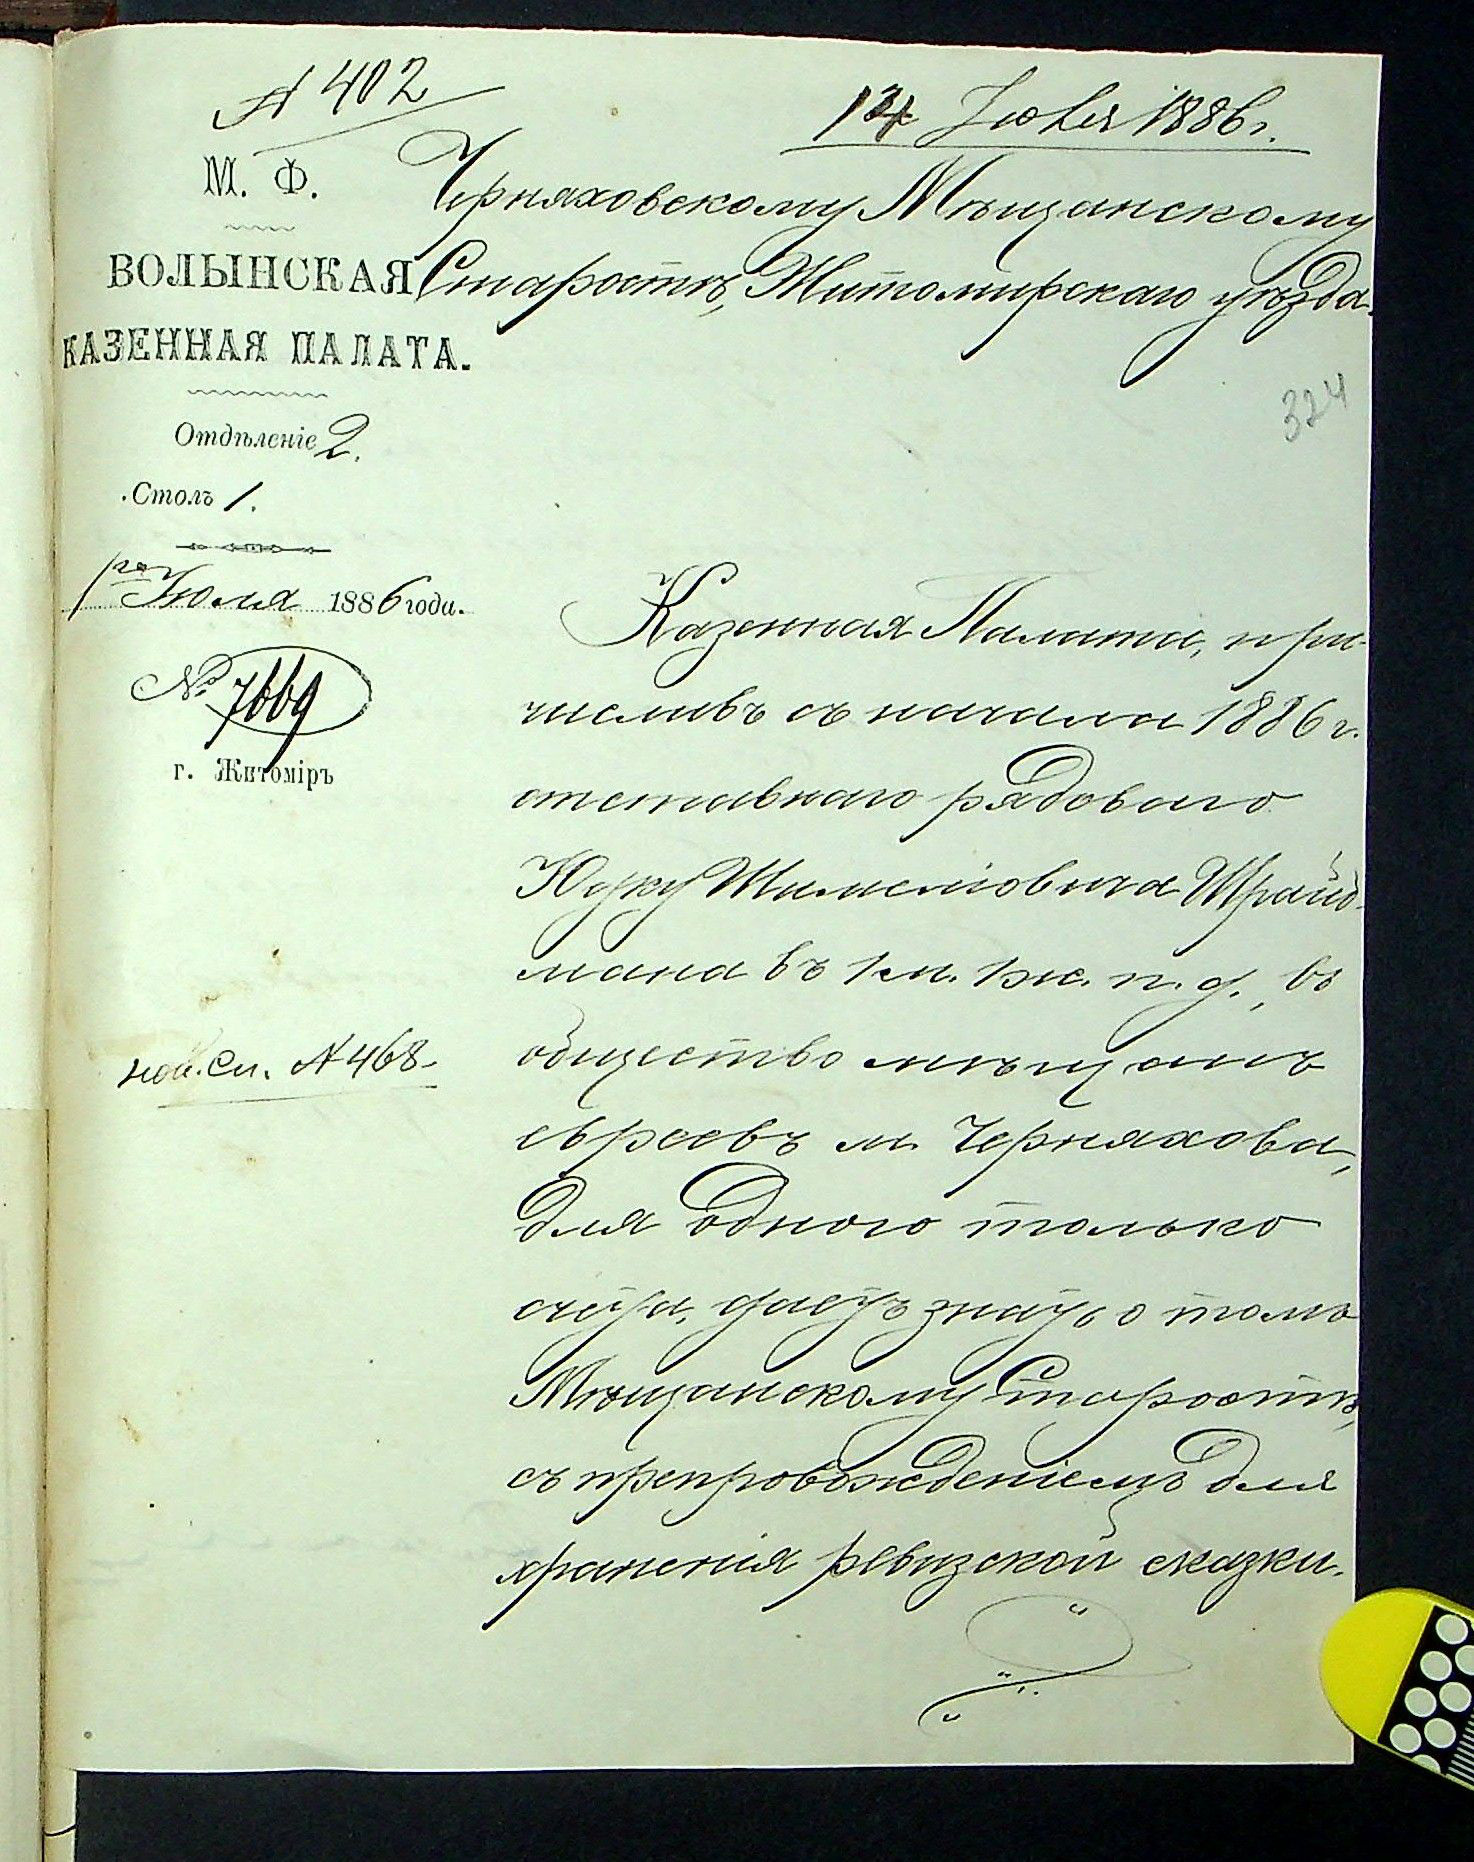 № 402
14 Июля 1886 г.
М. Ф.
ВОЛЫНСКАЯ
КАЗЕННАЯ ПАЛАТА.
Отдѣленіе 2.
Столъ 1.
1го Июля 1886 года.
№ 7669
г. Житоміръ
Черняховскому Мѣщанскому
Старостѣ, Житомирскаго уѣзда.
324
Казенная Палата, при-
числивъ съ начала 1886 г.
отставнаго рядоваго
Юдку Шмилевича Шрайд-
мана въ 1 м. 1 ж. п. д., въ
общество мѣщанъ
евреевъ м. Черняхова,
для одного только
счета, даетъ знать о томъ
Мѣщанскому Старостѣ,
съ препровожденіемъ для
храненія ревизской сказки.
Сп. № 468.